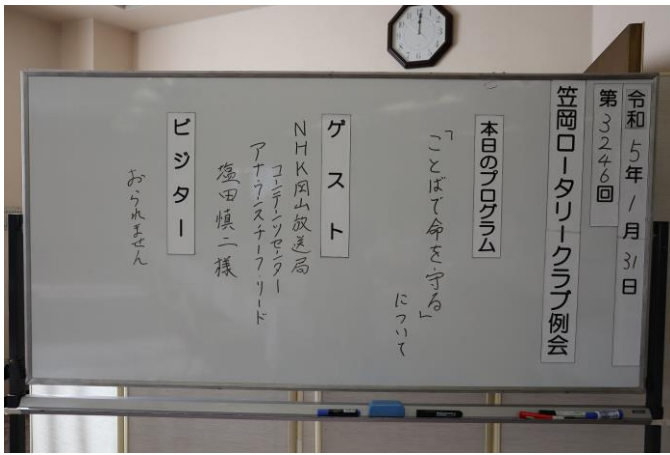 令和5年1月31日
第3246回
笠岡ロータリークラブ例会
本日のプログラム
「ことばで命を守る」
について
ゲスト
NHK岡山放送局
コンテンツセンター
アナウンスチーフ・リード
塩田慎二様
ビジター
おられません